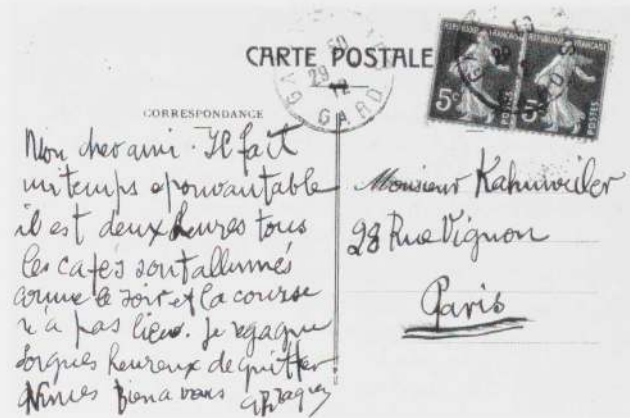 CARTE POSTALE
CORRESPONDANCE
Mon cher ami. Il fait
un temps epouvantable
il est deux heures tous
les cafés sont allumés
comme le soir et la course
n'a pas lieu. Je regagne
Sorgues heureux de quitter
Nimes bien a vous GBraque
Monsieur Kahnweiler
28 Rue Vignon
Paris
GARD
29
12
5c
POSTES